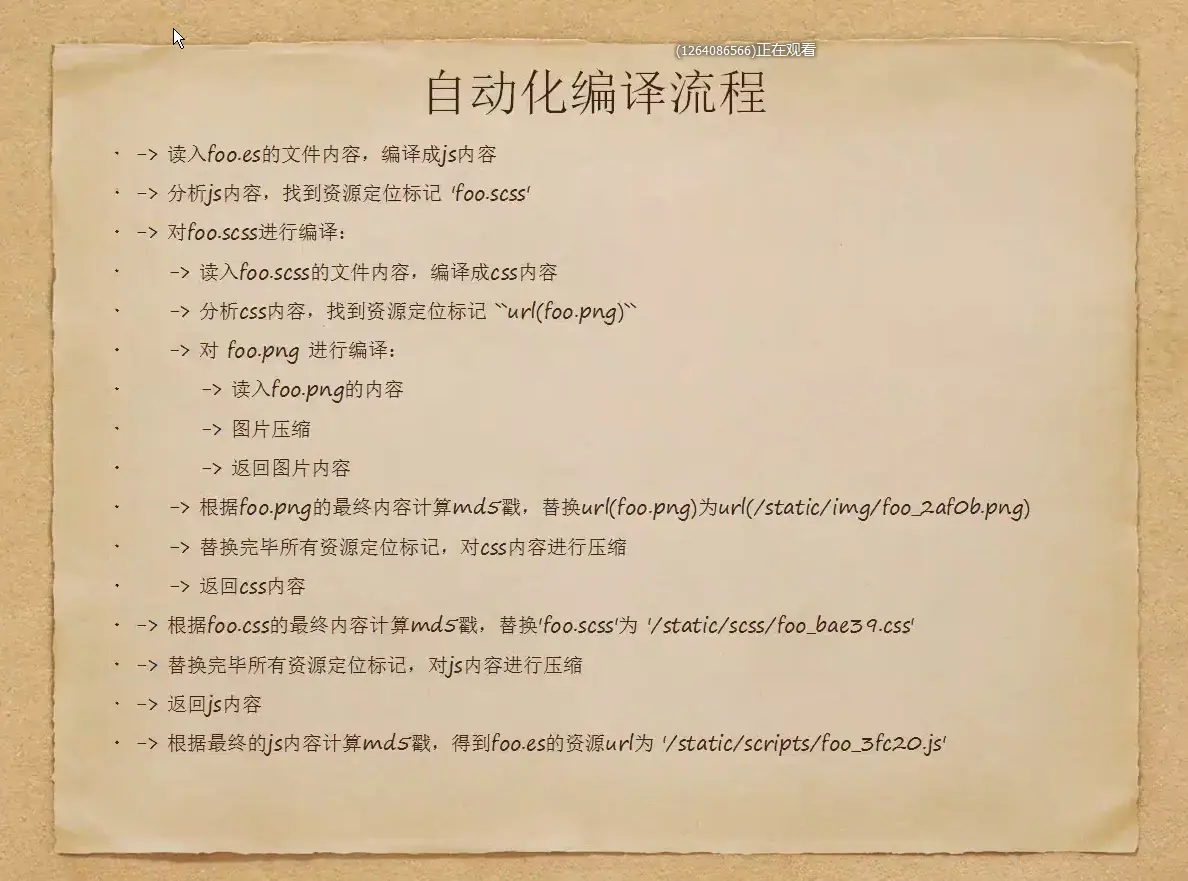 (1264086566)正在观看
自动化编译流程
· -> 读入foo.es的文件内容，编译成js内容
· -> 分析js内容，找到资源定位标记 'foo.scss'
· -> 对foo.scss进行编译：
· -> 读入foo.scss的文件内容，编译成css内容
· -> 分析css内容，找到资源定位标记 ``url(foo.png)``
· -> 对 foo.png 进行编译：
· -> 读入foo.png的内容
· -> 图片压缩
· -> 返回图片内容
· -> 根据foo.png的最终内容计算md5戳，替换url(foo.png)为url(/static/img/foo_2af0b.png)
· -> 替换完毕所有资源定位标记，对css内容进行压缩
· -> 返回css内容
· -> 根据foo.css的最终内容计算md5戳，替换'foo.scss'为 '/static/scss/foo_bae39.css'
· -> 替换完毕所有资源定位标记，对js内容进行压缩
· -> 返回js内容
· -> 根据最终的js内容计算md5戳，得到foo.es的资源url为 '/static/scripts/foo_3fc20.js'